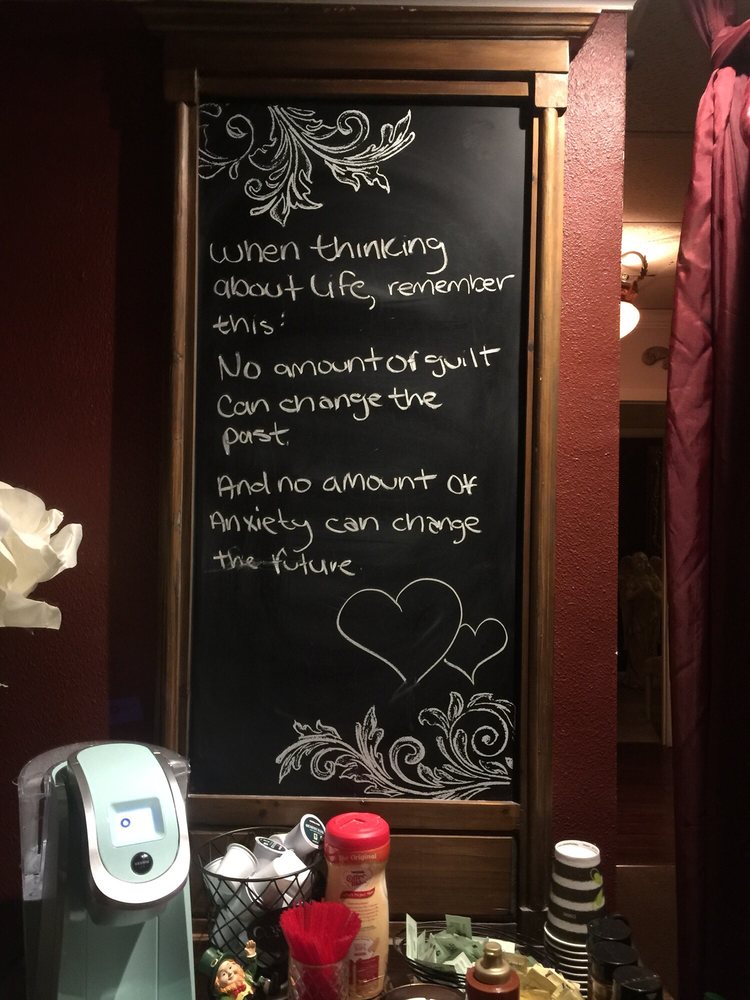 When thinking
about life, remember
this:
No amount of guilt
Can change the
past.
And no amount of
Anxiety can change
the future.
The Original